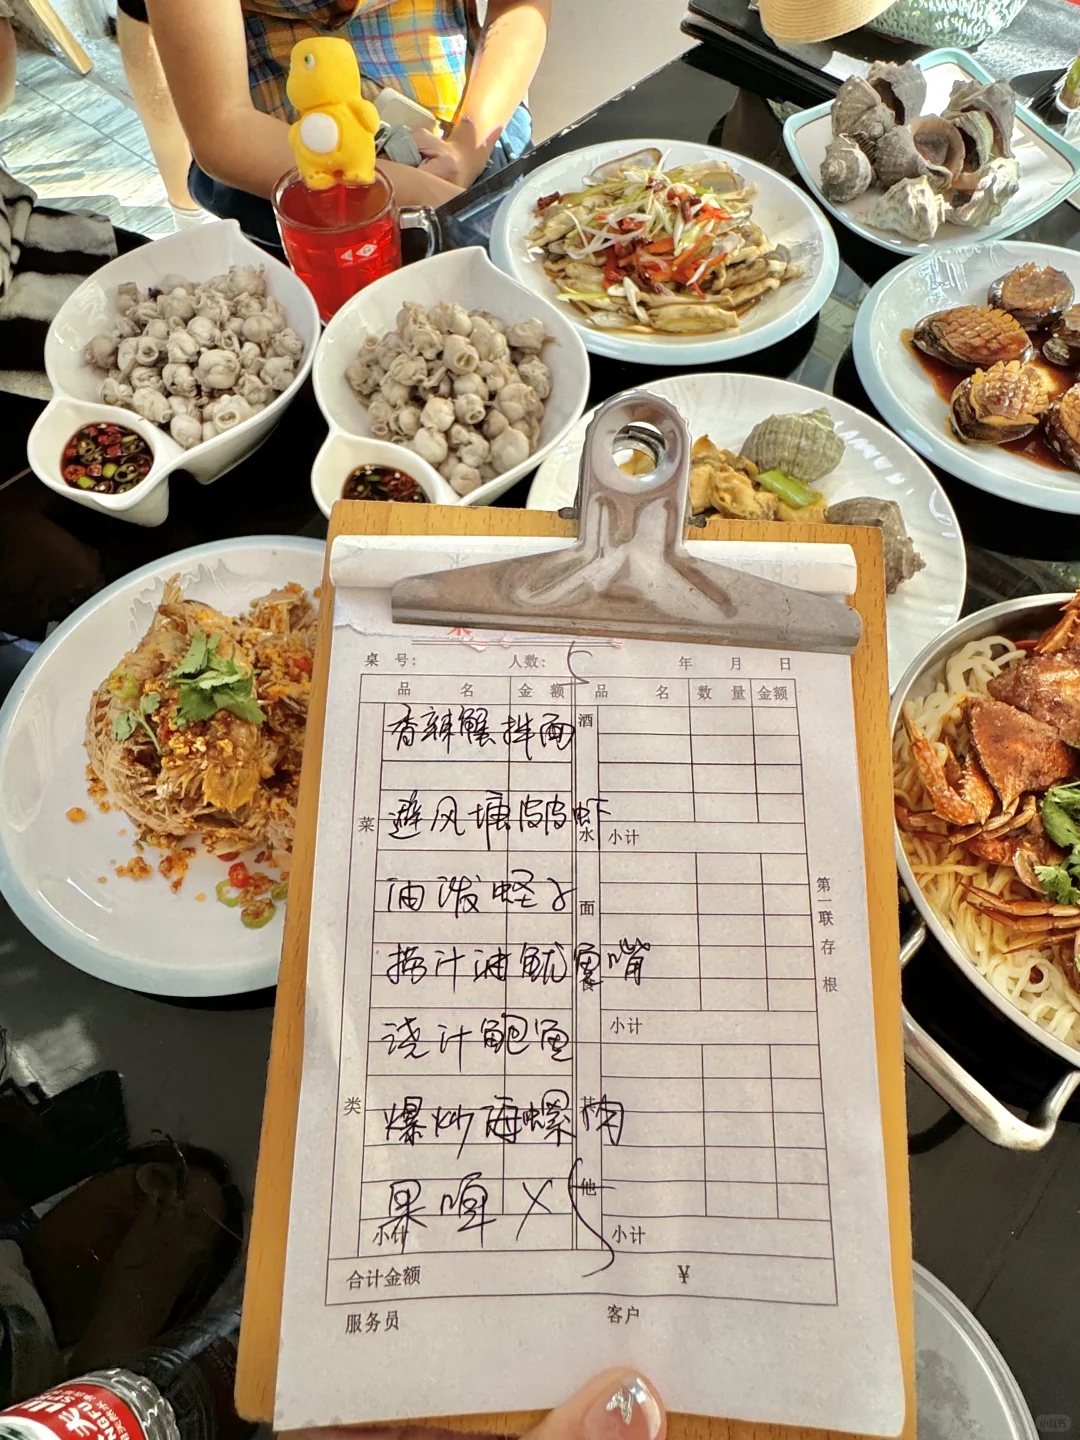 桌 号: 人数: 5 年 月 日
品 名 金 额 品 名 数 量 金额
香辣蟹拌面 酒
避风塘皮皮虾 水 小计
菜
油泼蛏子 面
捞汁油鱿鱼嘴
第一联 存根
浇汁鲍鱼 小计
类
爆炒海螺肉
果啤 X 5 他
小计 小计
合计金额 ¥
服务员 客户
小红书